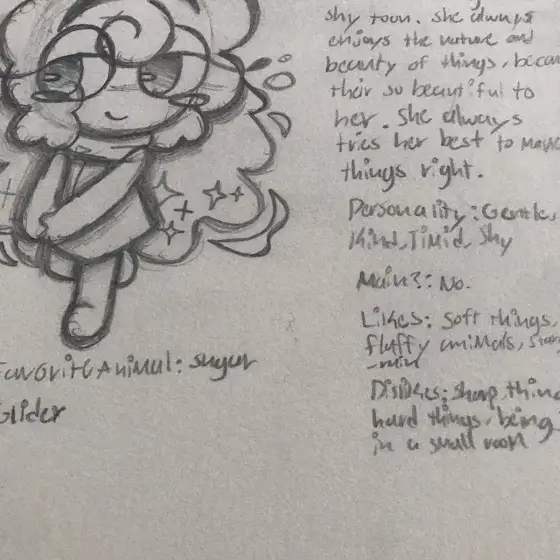 shy toon. she always
enjoys the nature and
beauty of things, becau
their so beautiful to
her. She always
tries her best to make
things right.
Personality: Gentle,
Kind, Timid, Shy
Main?: No.
Likes: soft things,
fluffy animals,
Dislikes: sharp thing
hard things, being
in a small room
Favorite Animal: sugar
Glider